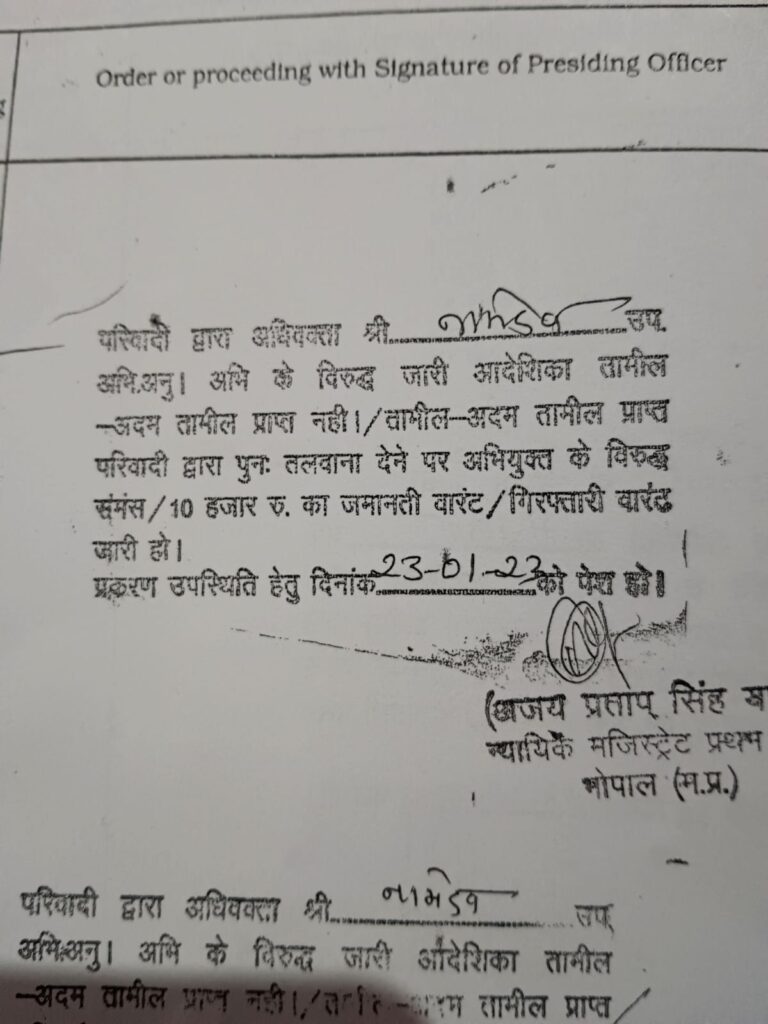 Order or proceeding with Signature of Presiding Officer
परिवादी द्वारा अधिवक्ता श्री नामदेव उप.
अभि.अनु। अभि के विरुद्ध जारी आदेशिका तामील
–अदम तामील प्राप्त नही।/तामील–अदम तामील प्राप्त
परिवादी द्वारा पुनः तलवाना देने पर अभियुक्त के विरुद्ध
संमंस/10 हजार रु. का जमानती वारंट/गिरफ्तारी वारंट
जारी हो।
प्रकरण उपस्थिति हेतु दिनांक 23-01-23 को पेश हो।
(अजय प्रताप सिंह
न्यायिक मजिस्ट्रेट प्रथम
भोपाल (म.प्र.)
परिवादी द्वारा अधिवक्ता श्री नामदेव उप
अभि.अनु। अभि के विरुद्ध जारी आदेशिका तामील
–अदम तामील प्राप्त नही।/ –अदम तामील प्राप्त/